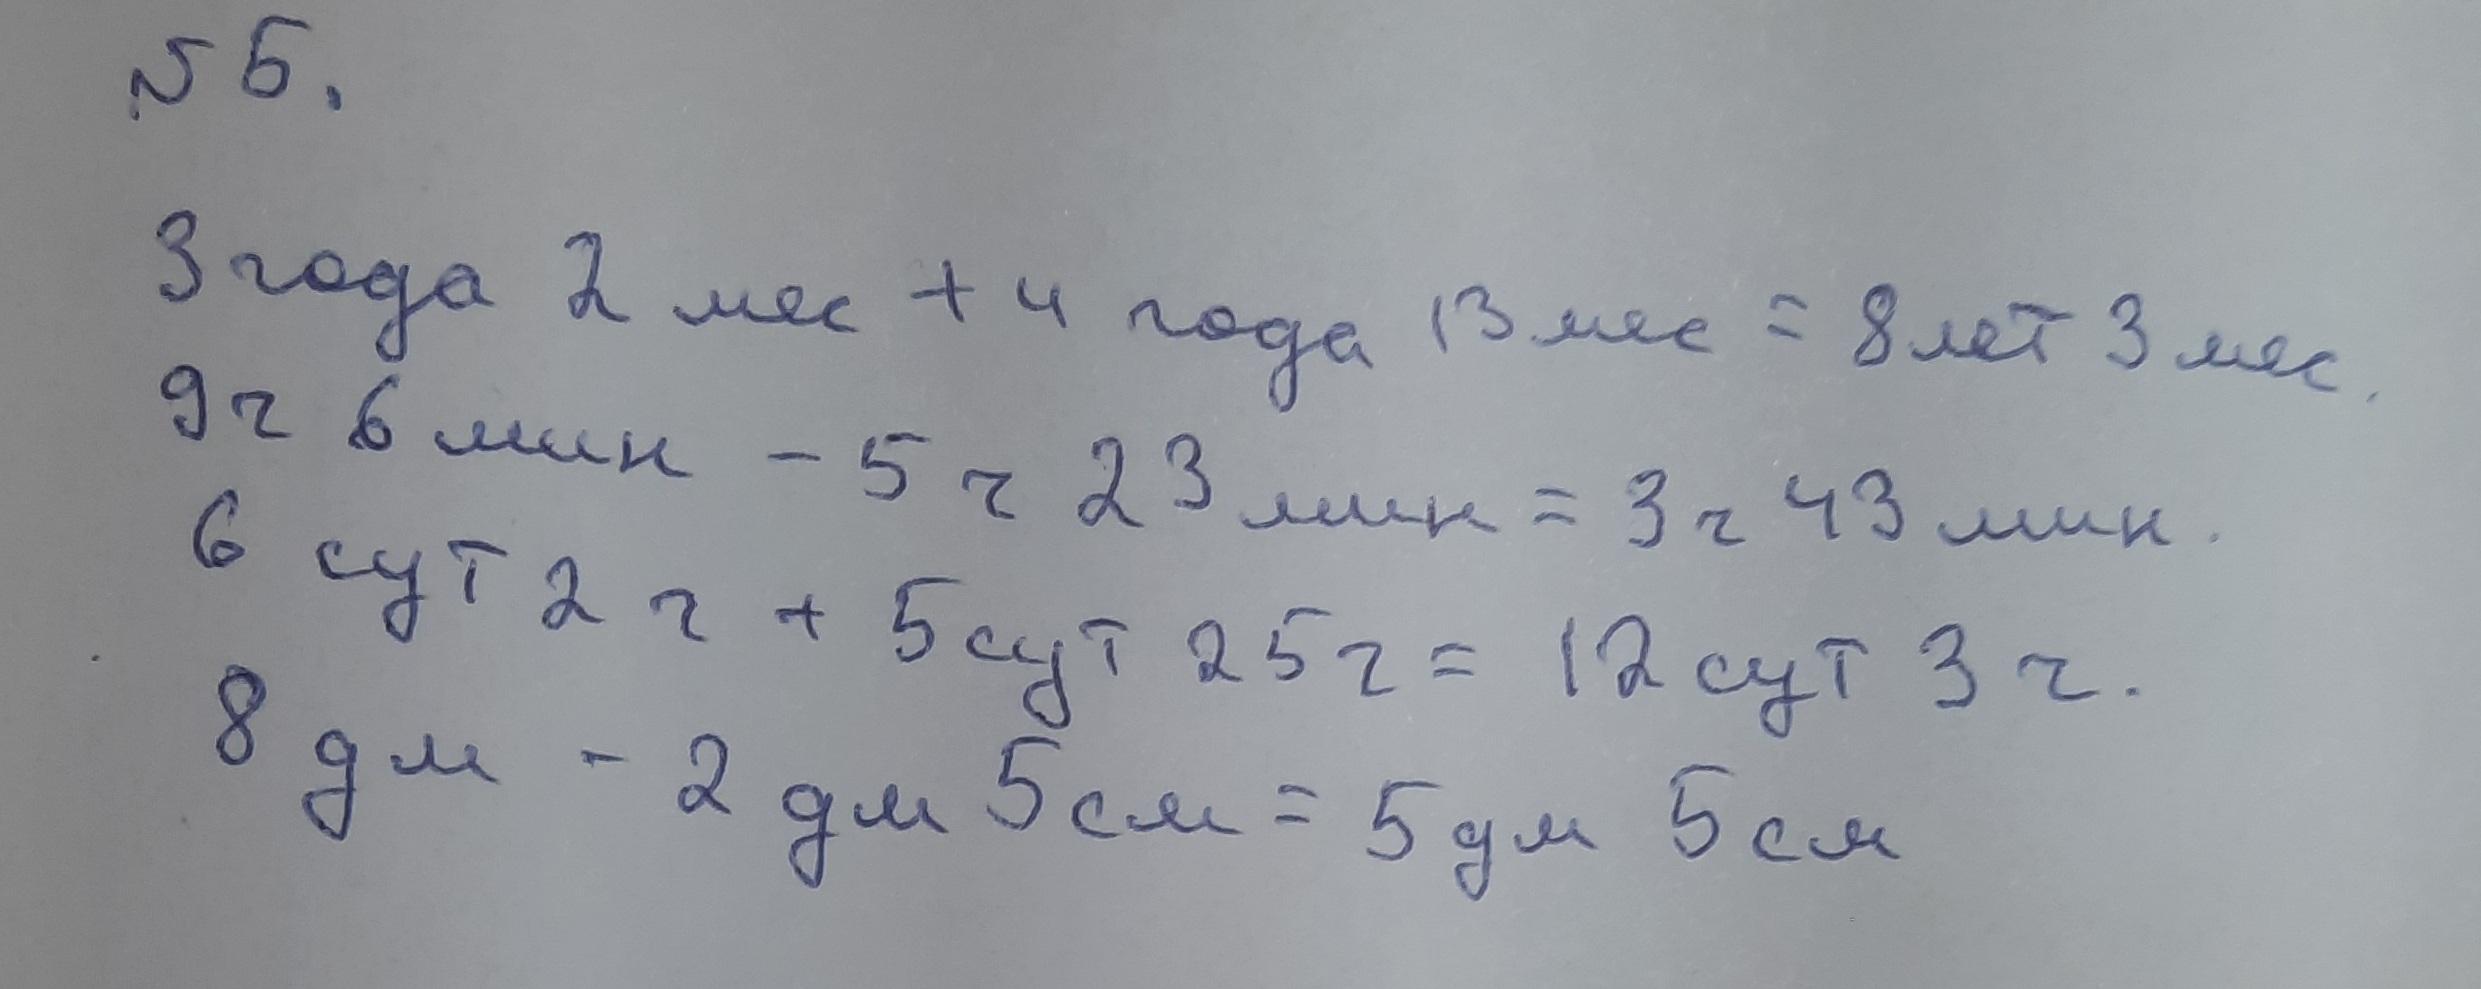 №5.
3 года 2 мес + 4 года 13 мес = 8 лет 3 мес.
9 ч 6 мин - 5 ч 23 мин = 3 ч 43 мин.
6 сут 2 ч + 5 сут 25 ч = 12 сут 3 ч.
8 дм - 2 дм 5 см = 5 дм 5 см